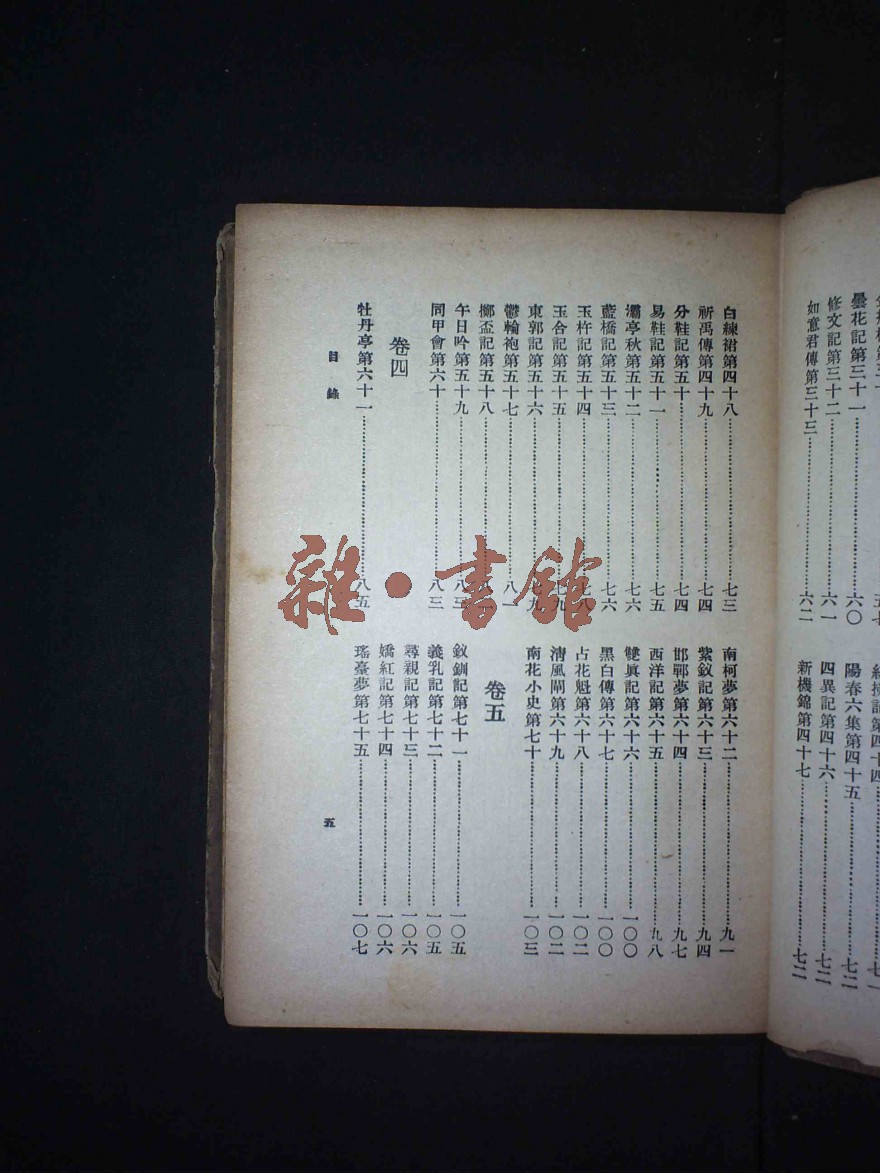 曇花記第三十一……六〇
修文記第三十二……六一
如意君傳第三十三……六二
陽春六集第四十五……七二
四異記第四十六……七二
新機錦第四十七……七二
白練裙第四十八……七三
祈禹傳第四十九……七四
分鞋記第五十……七四
易鞋記第五十一……七五
灞亭秋第五十二……七六
藍橋記第五十三……七六
玉杵記第五十四……七八
玉合記第五十五……七九
東郭記第五十六……七九
鬱輪袍第五十七……八一
擲盃記第五十八……
午日吟第五十九……八三
同甲會第六十……八三
卷四
牡丹亭第六十一……八五
南柯夢第六十二……九一
紫釵記第六十三……九四
邯鄲夢第六十四……九七
西洋記第六十五……九八
雙眞記第六十六……一〇〇
黑白傳第六十七……一〇〇
占花魁第六十八……一〇二
清風閘第六十九……一〇二
南花小史第七十……一〇三
卷五
釵釧記第七十一……一〇五
義乳記第七十二……一〇五
尋親記第七十三……一〇六
嬌紅記第七十四……一〇六
瑤臺夢第七十五……一〇七
目錄
五
雜・書館